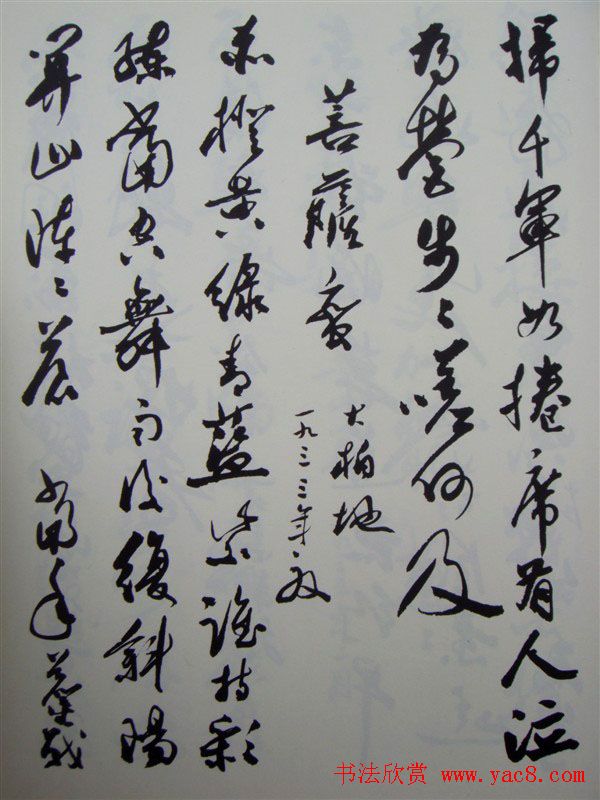 掃千軍如捲席有人泣
為營步々嗟何及
菩薩蠻
大柏地
一九三三年夏
赤橙黃綠青藍紫誰持彩
練當空舞雨後復斜陽
關山陣々蒼 當年鏖戰
书法欣赏 www.yac8.com